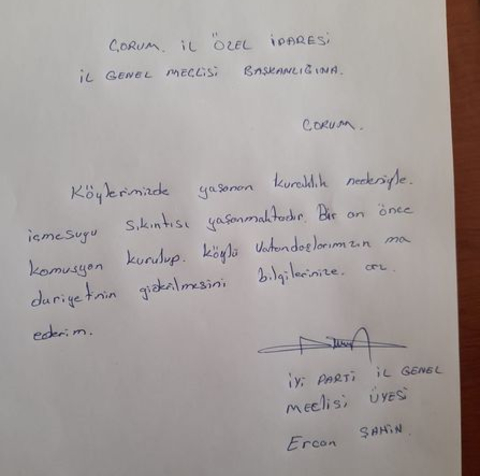 ÇORUM. İL ÖZEL İDARESİ
İL GENEL MECLİSİ BAŞKANLIĞINA.
ÇORUM.
Köylerimizde yaşanan kuraklık nedeniyle.
içmesuyu sıkıntısı yaşanmaktadır. Bir an önce
komusyon kurulup. köylü vatandaşlarımızın ma
duriyetinin giderilmesini bilgilerinize. arz.
ederim.
İYİ PARTİ İL GENEL
MECLİSİ ÜYESİ
Ercan ŞAHİN.